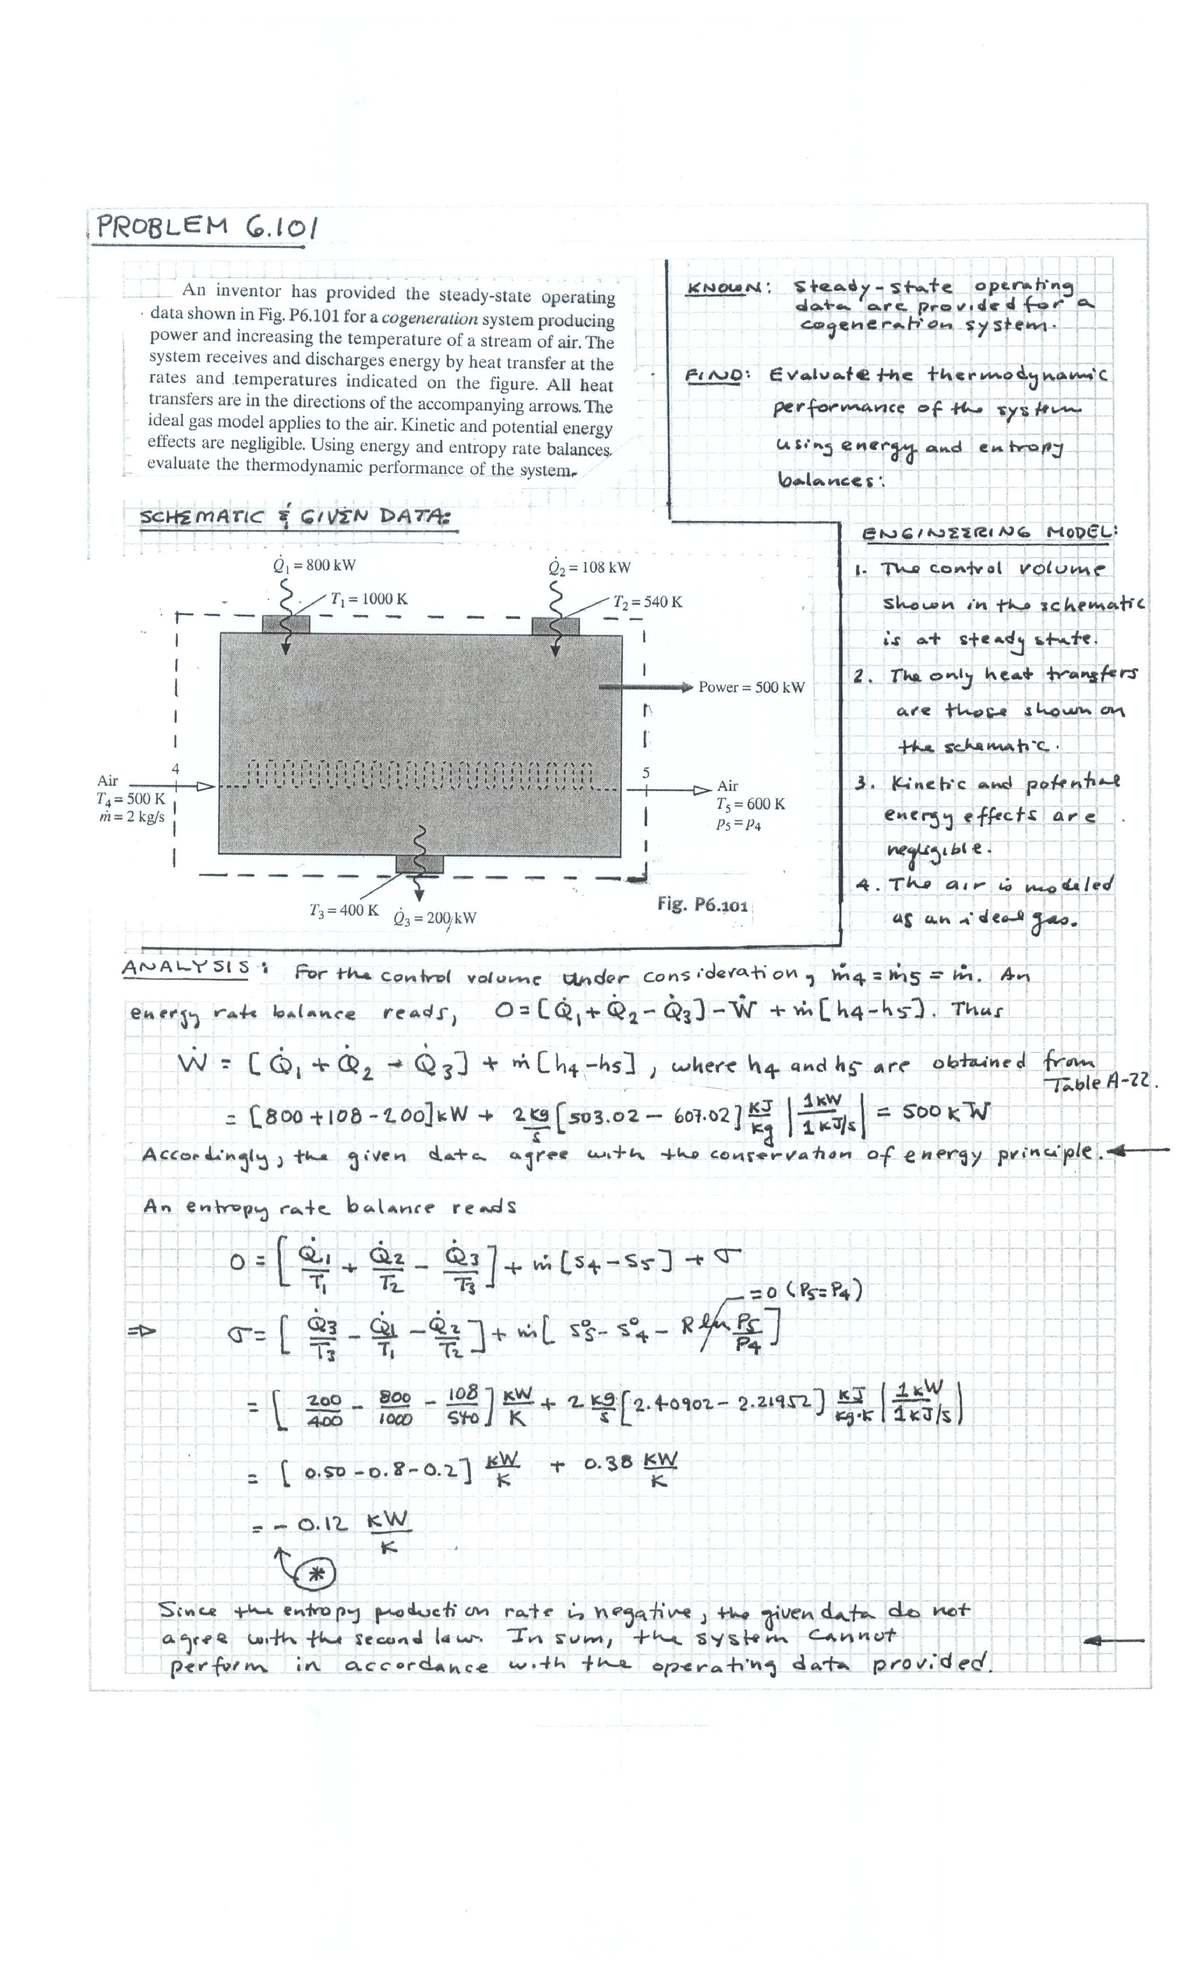 PROBLEM 6.101
An inventor has provided the steady-state operating
data shown in Fig. P6.101 for a cogeneration system producing
power and increasing the temperature of a stream of air. The
system receives and discharges energy by heat transfer at the
rates and temperatures indicated on the figure. All heat
transfers are in the directions of the accompanying arrows. The
ideal gas model applies to the air. Kinetic and potential energy
effects are negligible. Using energy and entropy rate balances,
evaluate the thermodynamic performance of the system.
KNOWN: Steady-state operating
data are provided for a
cogeneration system.
FIND: Evaluate the thermodynamic
performance of the system
using energy and entropy
balances.
SCHEMATIC & GIVEN DATA:
Q̇1 = 800 kW
Q̇2 = 108 kW
T1 = 1000 K
T2 = 540 K
Power = 500 kW
4
Air
T4 = 500 K
ṁ = 2 kg/s
5
Air
T5 = 600 K
p5 = p4
T3 = 400 K
Q̇3 = 200 kW
Fig. P6.101
ENGINEERING MODEL:
1. The control volume
shown in the schematic
is at steady state.
2. The only heat transfers
are those shown on
the schematic.
3. Kinetic and potential
energy effects are
negligible.
4. The air is modeled
as an ideal gas.
ANALYSIS: For the control volume under consideration, ṁ4 = ṁ5 = ṁ. An
energy rate balance reads, 0 = [Q̇1 + Q̇2 - Q̇3] - Ẇ + ṁ[h4-h5]. Thus
Ẇ = [Q̇1 + Q̇2 - Q̇3] + ṁ[h4-h5], where h4 and h5 are obtained from
Table A-22.
= [800+108-200]kW + 2 kg/s [503.02 - 607.02] kJ/kg |1 kW/1 kJ/s| = 500 kW
Accordingly, the given data agree with the conservation of energy principle.
An entropy rate balance reads
0 = [Q̇1/T1 + Q̇2/T2 - Q̇3/T3] + ṁ[s4-s5] + σ
=0 (P5=P4)
⇒ σ = [Q̇3/T3 - Q̇1/T1 - Q̇2/T2] + ṁ[s°5 - s°4 - R ln P5/P4]
= [200/400 - 800/1000 - 108/540] kW/K + 2 kg/s [2.40902 - 2.21952] kJ/kg·K |1 kW/1 kJ/s|
= [0.50-0.8-0.2] kW/K + 0.38 kW/K
= - 0.12 kW/K
*
Since the entropy production rate is negative, the given data do not
agree with the second law. In sum, the system cannot
perform in accordance with the operating data provided.